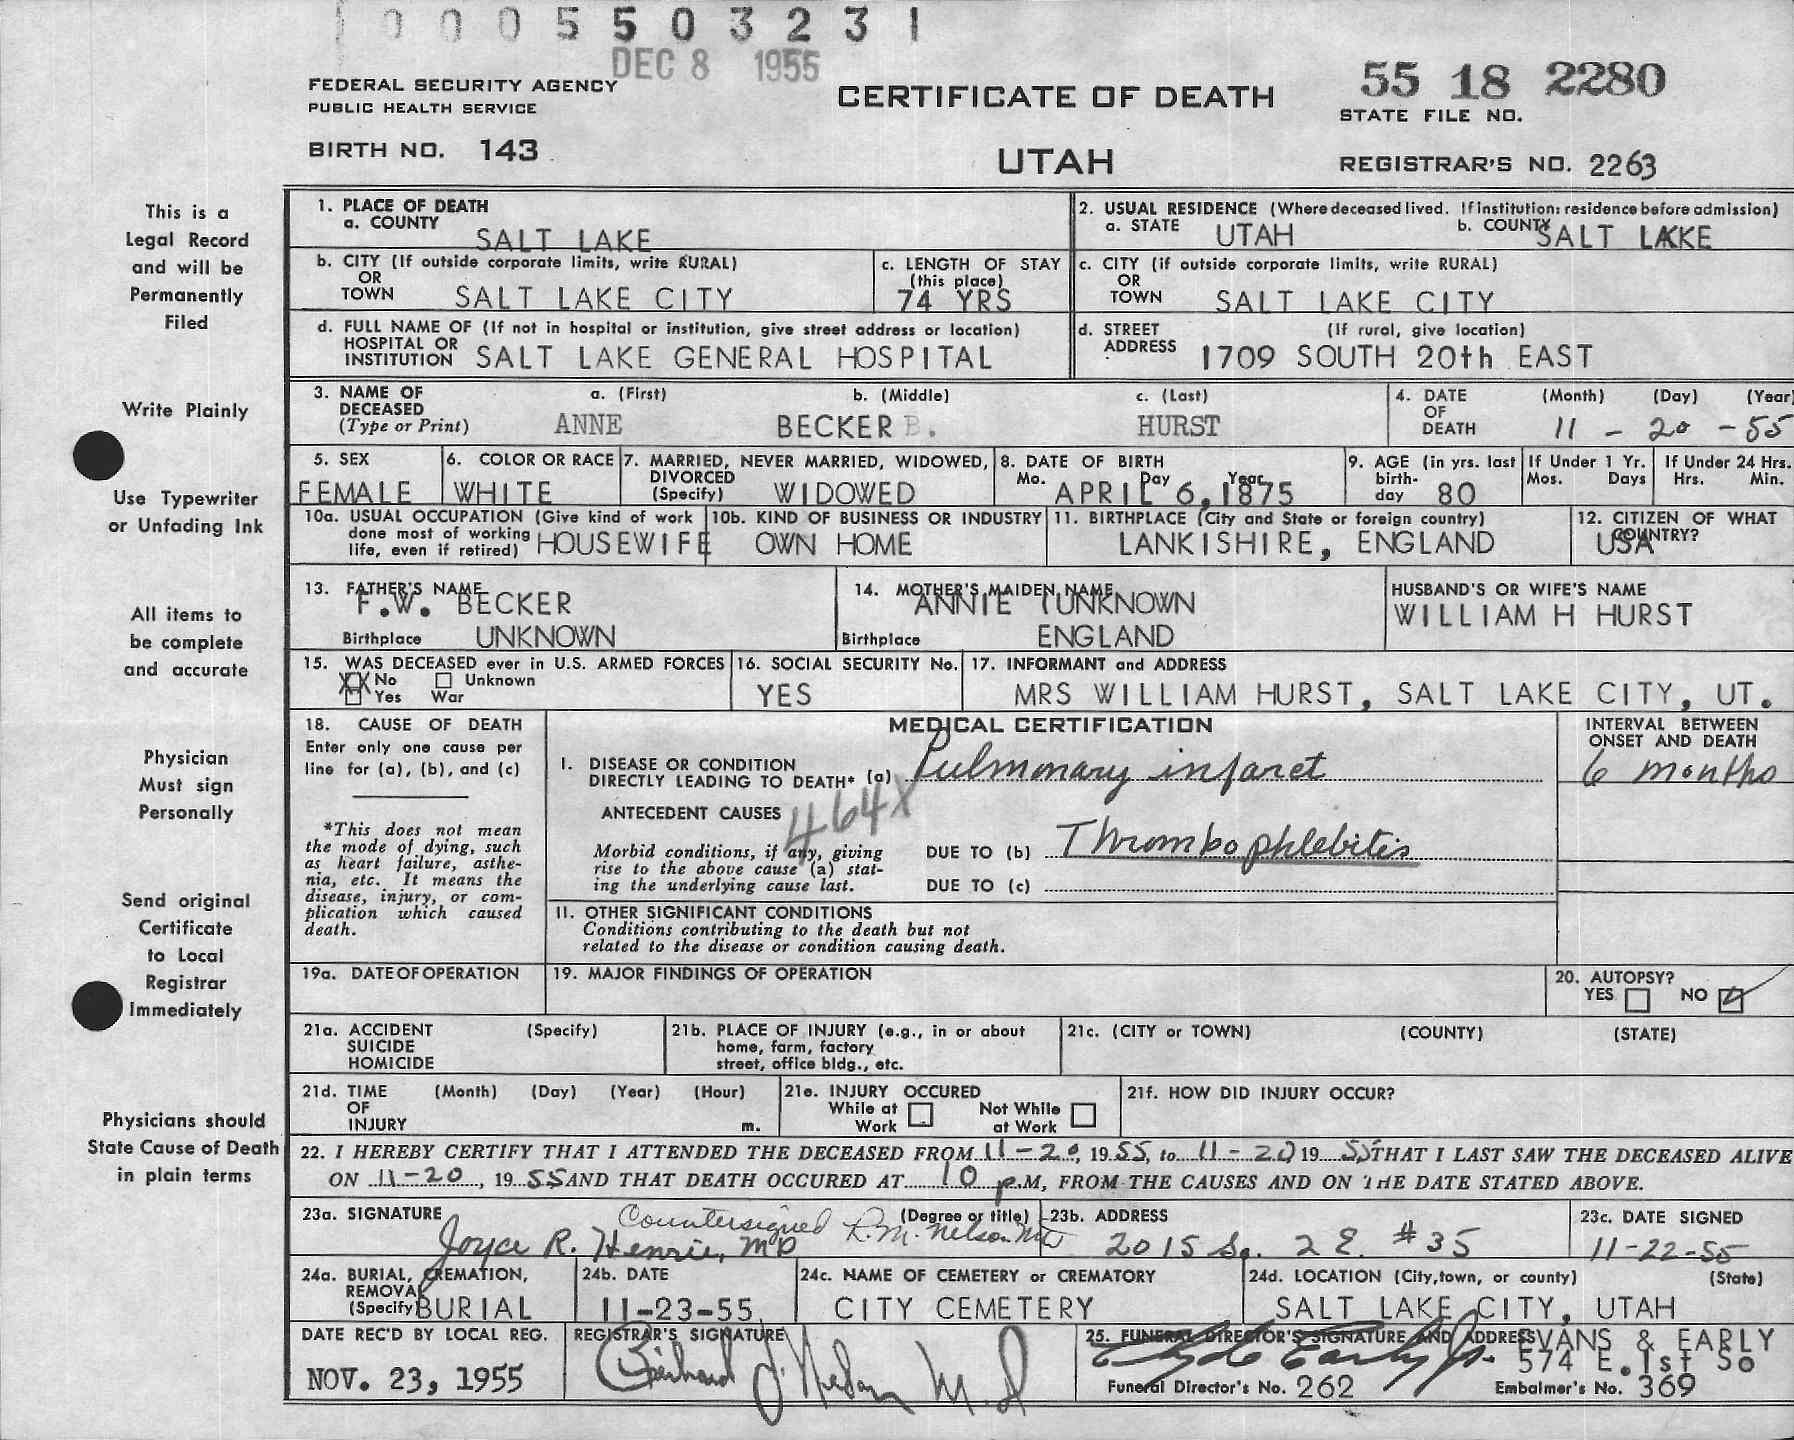 1 0 0 0 5 5 0 3 2 3 1
DEC 8 1955
FEDERAL SECURITY AGENCY
PUBLIC HEALTH SERVICE
BIRTH NO. 143
CERTIFICATE OF DEATH
UTAH
55 18 2280
STATE FILE NO.
REGISTRAR'S NO. 2263
This is a
Legal Record
and will be
Permanently
Filed
Write Plainly
Use Typewriter
or Unfading Ink
All items to
be complete
and accurate
Physician
Must sign
Personally
Send original
Certificate
to Local
Registrar
Immediately
Physicians should
State Cause of Death
in plain terms
1. PLACE OF DEATH
a. COUNTY SALT LAKE
2. USUAL RESIDENCE (Where deceased lived. If institution: residence before admission)
a. STATE UTAH b. COUNTY SALT LAKE
b. CITY (If outside corporate limits, write RURAL)
OR
TOWN SALT LAKE CITY
c. LENGTH OF STAY
(this place)
74 YRS
c. CITY (if outside corporate limits, write RURAL)
OR
TOWN SALT LAKE CITY
d. FULL NAME OF (If not in hospital or institution, give street address or location)
HOSPITAL OR
INSTITUTION SALT LAKE GENERAL HOSPITAL
d. STREET (If rural, give location)
ADDRESS 1709 SOUTH 20th EAST
3. NAME OF a. (First) b. (Middle) c. (Last)
DECEASED
(Type or Print) ANNE BECKER B. HURST
4. DATE (Month) (Day) (Year)
OF
DEATH 11 - 20 - 55
5. SEX
FEMALE
6. COLOR OR RACE
WHITE
7. MARRIED, NEVER MARRIED, WIDOWED,
DIVORCED
(Specify) WIDOWED
8. DATE OF BIRTH
Mo. Day Year
APRIL 6, 1875
9. AGE (in yrs. last
birth-
day 80
If Under 1 Yr.
Mos. Days
If Under 24 Hrs.
Hrs. Min.
10a. USUAL OCCUPATION (Give kind of work
done most of working
life, even if retired) HOUSEWIFE
10b. KIND OF BUSINESS OR INDUSTRY
OWN HOME
11. BIRTHPLACE (City and State or foreign country)
LANKISHIRE, ENGLAND
12. CITIZEN OF WHAT
COUNTRY?
USA
13. FATHER'S NAME
F.W. BECKER
Birthplace UNKNOWN
14. MOTHER'S MAIDEN NAME
ANNIE (UNKNOWN
Birthplace ENGLAND
HUSBAND'S OR WIFE'S NAME
WILLIAM H HURST
15. WAS DECEASED ever in U.S. ARMED FORCES
XX No Unknown
Yes War
16. SOCIAL SECURITY No.
YES
17. INFORMANT and ADDRESS
MRS WILLIAM HURST, SALT LAKE CITY, UT.
18. CAUSE OF DEATH
Enter only one cause per
line for (a), (b), and (c)
*This does not mean
the mode of dying, such
as heart failure, asthe-
nia, etc. It means the
disease, injury, or com-
plication which caused
death.
MEDICAL CERTIFICATION
INTERVAL BETWEEN
ONSET AND DEATH
I. DISEASE OR CONDITION
DIRECTLY LEADING TO DEATH* (a) Pulmonary infarct 6 months
ANTECEDENT CAUSES 464X
Morbid conditions, if any, giving
rise to the above cause (a) stat-
ing the underlying cause last.
DUE TO (b) Thrombophlebitis
DUE TO (c)
II. OTHER SIGNIFICANT CONDITIONS
Conditions contributing to the death but not
related to the disease or condition causing death.
19a. DATE OF OPERATION
19. MAJOR FINDINGS OF OPERATION
20. AUTOPSY?
YES NO
21a. ACCIDENT (Specify)
SUICIDE
HOMICIDE
21b. PLACE OF INJURY (e.g., in or about
home, farm, factory
street, office bldg., etc.
21c. (CITY or TOWN) (COUNTY) (STATE)
21d. TIME (Month) (Day) (Year) (Hour)
OF
INJURY m.
21e. INJURY OCCURED
While at Work Not While at Work
21f. HOW DID INJURY OCCUR?
22. I HEREBY CERTIFY THAT I ATTENDED THE DECEASED FROM 11-20, 1955, to 11-20 1955 THAT I LAST SAW THE DECEASED ALIVE
ON 11-20, 1955 AND THAT DEATH OCCURED AT 10 p.M, FROM THE CAUSES AND ON THE DATE STATED ABOVE.
23a. SIGNATURE (Degree or title)
Countersigned R.M. Nelson MD
Joyce R. Henrie, MD
23b. ADDRESS
2015 So. 2 E. #35
23c. DATE SIGNED
11-22-55
24a. BURIAL, CREMATION,
REMOVAL
(Specify) BURIAL
24b. DATE
11-23-55
24c. NAME OF CEMETERY or CREMATORY
CITY CEMETERY
24d. LOCATION (City, town, or county) (State)
SALT LAKE CITY, UTAH
DATE REC'D BY LOCAL REG.
NOV. 23, 1955
REGISTRAR'S SIGNATURE
M.D
25. FUNERAL DIRECTOR'S SIGNATURE AND ADDRESS EVANS & EARLY
Clyde Early Jr. 574 E. 1st So
Funeral Director's No. 262 Embalmer's No. 369